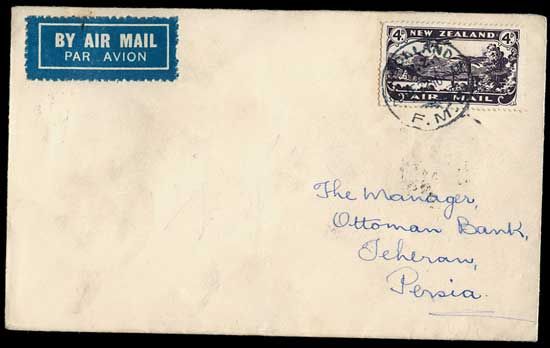 BY AIR MAIL
PAR AVION
4d NEW ZEALAND 4d
AIR MAIL
F.M.
The Manager,
Ottoman Bank,
Teheran,
Persia.